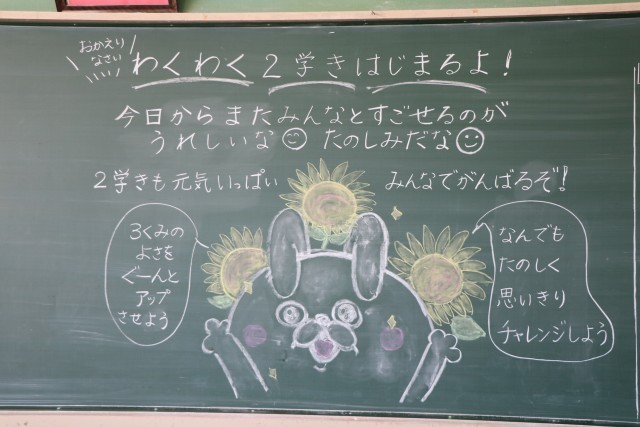 おかえり
なさい
わくわく2学きはじまるよ!
今日からまたみんなとすごせるのが
うれしいな たのしみだな
2学きも元気いっぱい みんなでがんばるぞ!
3くみの
よさを
ぐーんと
アップ
させよう
なんでも
たのしく
思いきり
チャレンジしよう